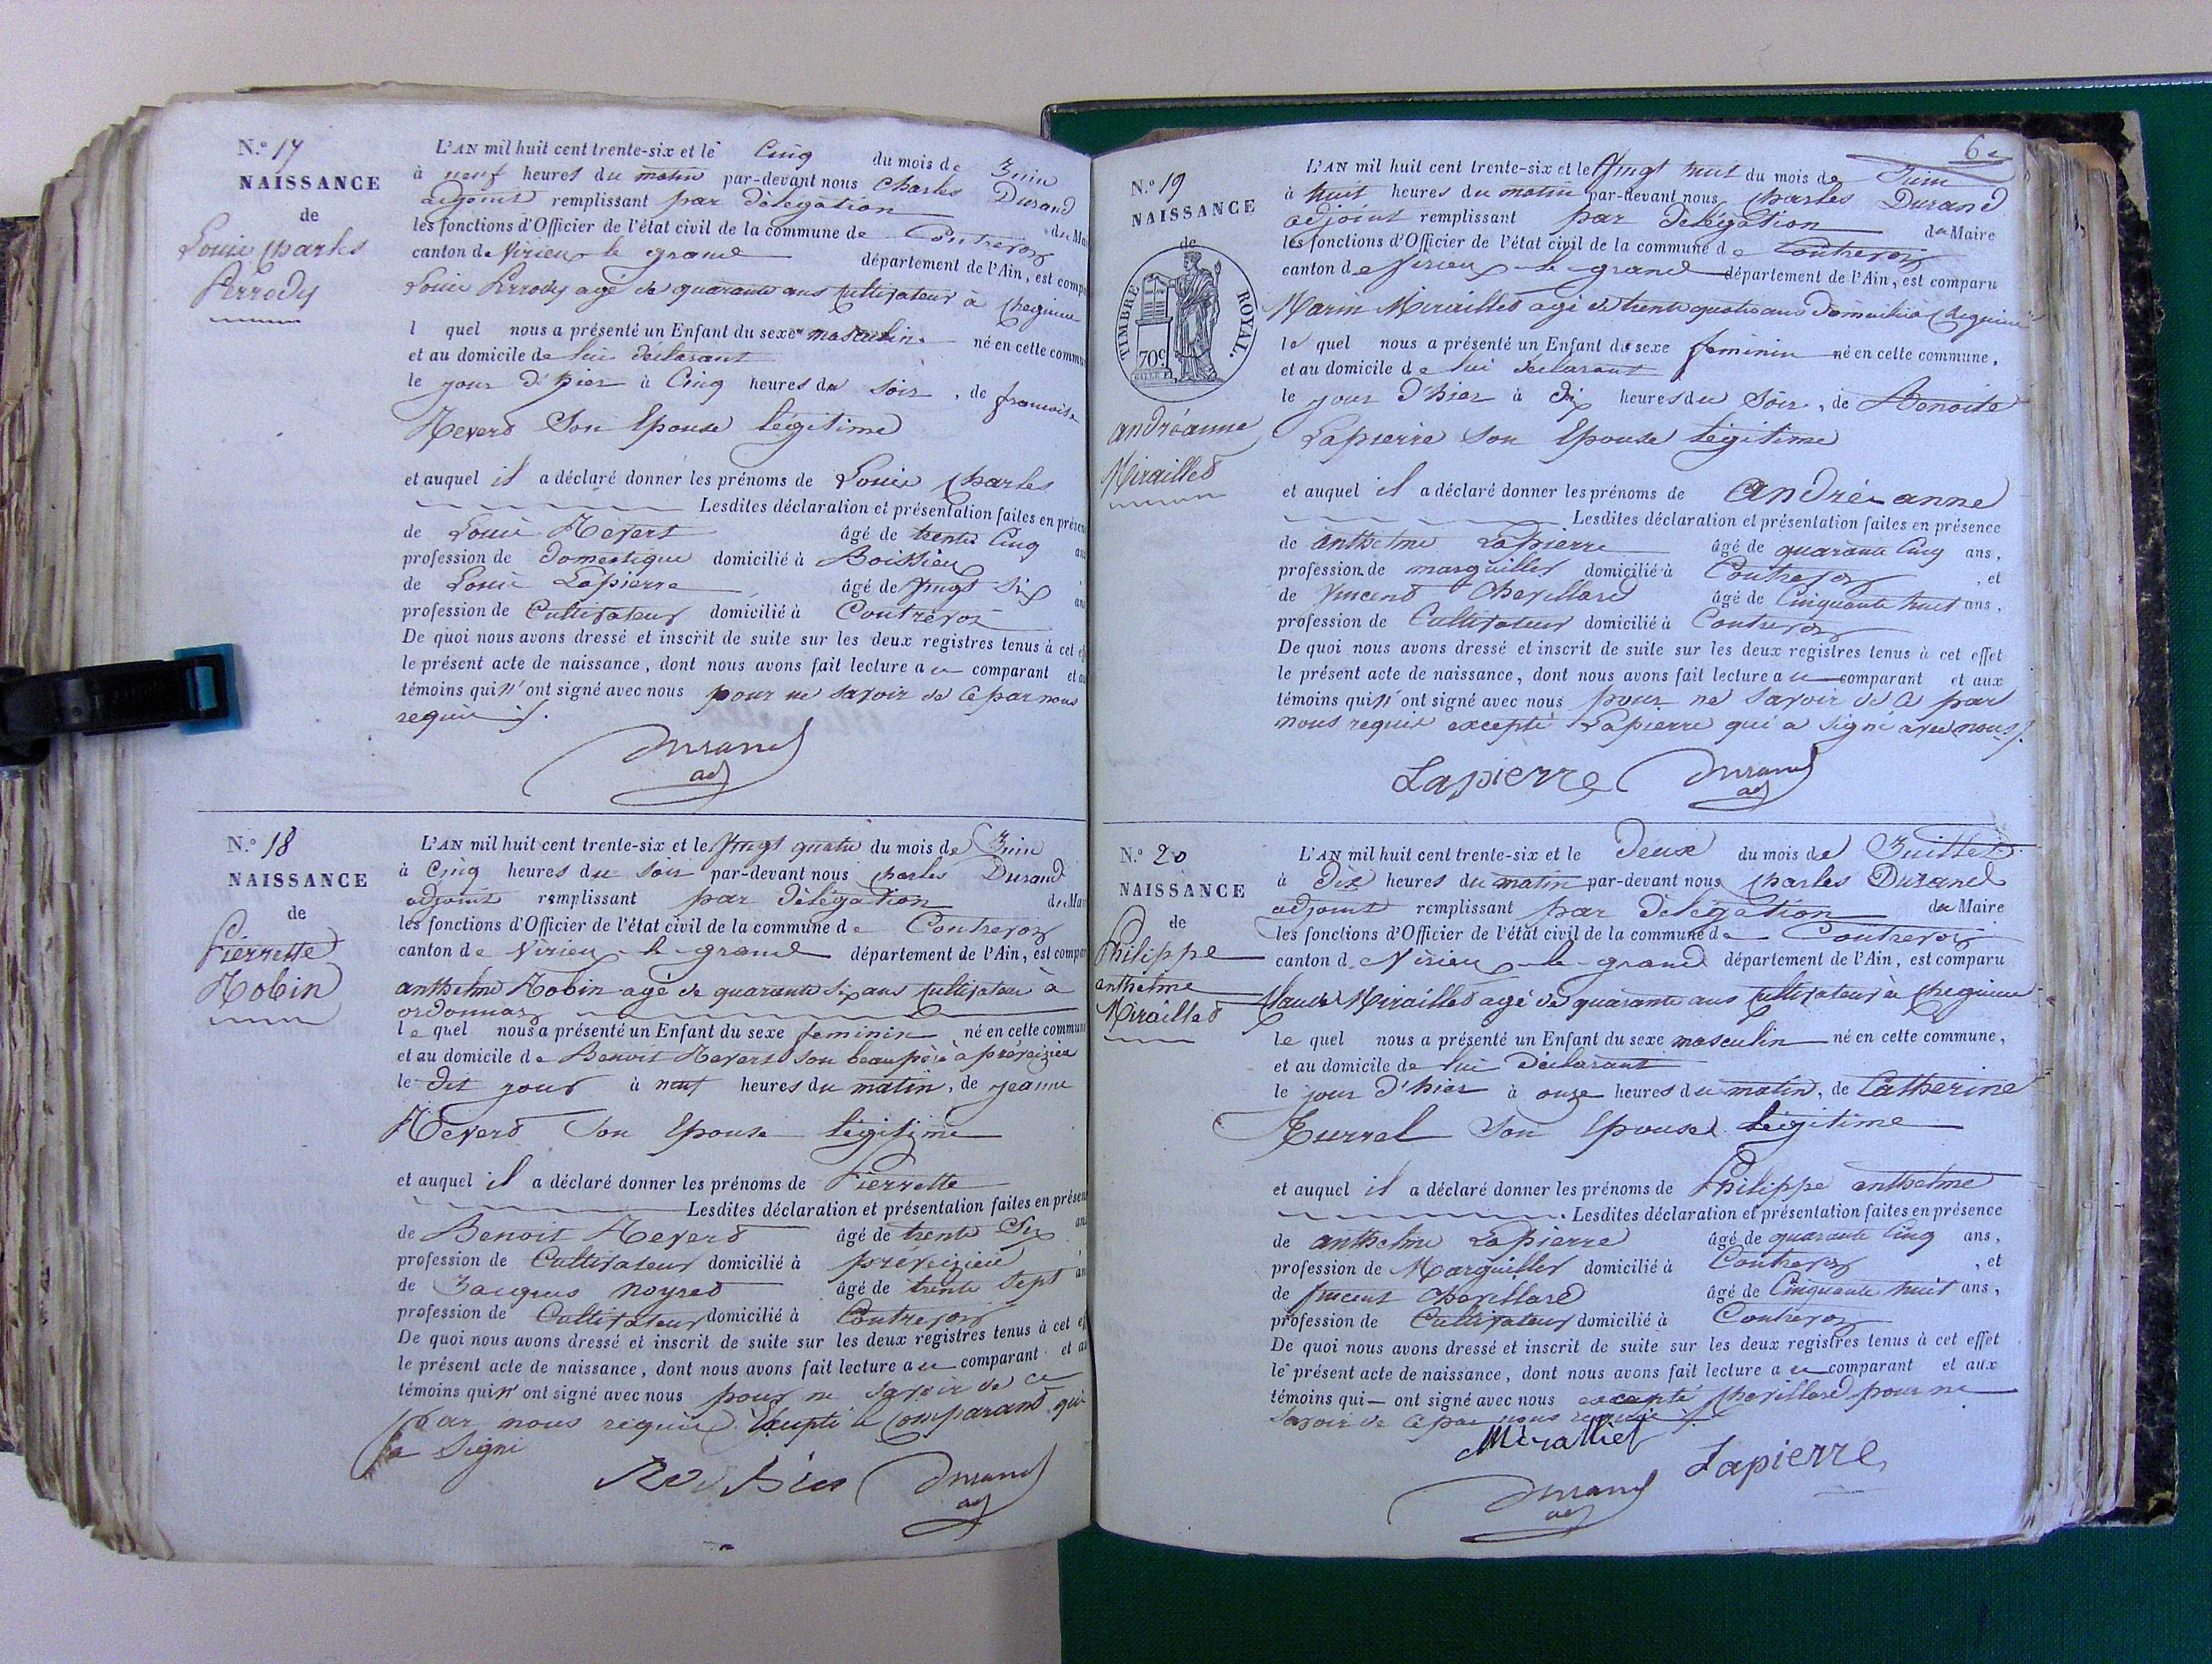 N.° 17
NAISSANCE
de
Louis Charles
Perrody
L'AN mil huit cent trente-six et le Cinq du mois de Juin
à neuf heures du matin par-devant nous Charles Durand
adjoint remplissant par délégation du Mai
les fonctions d'Officier de l'état civil de la commune de Contrevoz
canton de Virieu le grand département de l'Ain, est comp
Louis Perrody agé de quarante ans Cultivateur à Chegnieu
l quel nous a présenté un Enfant du sexe masculin né en cette commu
et au domicile de lui déclarant
le jour d'hier à Cinq heures du soir, de francoise
Revers Son Epouse légitime
et auquel il a déclaré donner les prénoms de Louis Charles
Lesdites déclaration et présentation faites en présen
de Louis Revert âgé de trente Cinq an
profession de domestique domicilié à Boissieu
de Louis Lapierre âgé de Vingt Six an
profession de Cultivateur domicilié à Contrevoz
De quoi nous avons dressé et inscrit de suite sur les deux registres tenus à cet ef
le présent acte de naissance, dont nous avons fait lecture au comparant et au
témoins qui n'ont signé avec nous pour ne savoir de ce par nous
requis ./.
Durand
adj
N.° 18
NAISSANCE
de
Pierrette
Robin
L'AN mil huit cent trente-six et le Vingt quatre du mois de Juin
à Cinq heures du soir par-devant nous Charles Durand
adjoint remplissant par délégation du Mai
les fonctions d'Officier de l'état civil de la commune de Contrevoz
canton de Virieu-le-grand département de l'Ain, est compar
anthelme Robin agé de quarante six ans Cultivateur à
ordonnaz
le quel nous a présenté un Enfant du sexe feminin né en cette commun
et au domicile de Benoit Revert son beau père à préveizieu
le dit jour à neuf heures du matin, de jeanne
Revers Son Epouse légitime
et auquel il a déclaré donner les prénoms de Pierrette
Lesdites déclaration et présentation faites en présen
de Benoit Revers âgé de trente Six an
profession de Cultivateur domicilié à préveizieu
de Jacques noyred âgé de trente Sept an
profession de Cultivateur domicilié à Contrevoz
De quoi nous avons dressé et inscrit de suite sur les deux registres tenus à cet ef
le présent acte de naissance, dont nous avons fait lecture au comparant et au
témoins qui n'ont signé avec nous pour ne savoir de ce
par nous requis Excepté le Comparant qui
a Signé
Robin
Durand
adj
6e
N.° 19
NAISSANCE
de
TIMBRE ROYAL.
70c
andréanne
Mirailles
L'AN mil huit cent trente-six et le Vingt huit du mois de Juin
à huit heures du matin par-devant nous Charles Durand
adjoint remplissant par délégation du Maire
les fonctions d'Officier de l'état civil de la commune de Contrevoz
canton de Virieu-le-grand département de l'Ain, est comparu
Marin Mirailles agé de trente quatre ans domicilié à Chegnieu
le quel nous a présenté un Enfant du sexe feminin né en cette commune,
et au domicile de lui déclarant
le jour d'hier à dix heures du Soir, de Benoite
Lapierre Son Epouse légitime
et auquel il a déclaré donner les prénoms de andré-anne
Lesdites déclaration et présentation faites en présence
de anthelme Lapierre âgé de quarante Cinq ans,
profession de marguiller domicilié à Contrevoz, et
de Vincent Chevillard âgé de Cinquante huit ans,
profession de Cultivateur domicilié à Contrevoz
De quoi nous avons dressé et inscrit de suite sur les deux registres tenus à cet effet
le présent acte de naissance, dont nous avons fait lecture au comparant et aux
témoins qui n'ont signé avec nous pour ne savoir de ce par
nous requis excepté Lapierre qui a signé avec nous ./.
Lapierre
Durand
adj
N.° 20
NAISSANCE
de
Philippe
anthelme
Mirailles
L'AN mil huit cent trente-six et le Deux du mois de Juillet
à Dix heures du matin par-devant nous Charles Durand
adjoint remplissant par délégation du Maire
les fonctions d'Officier de l'état civil de la commune de Contrevoz
canton d Virieu-le-grand département de l'Ain, est comparu
Claude Mirailles agé de quarante ans Cultivateur à Chegnieu
le quel nous a présenté un Enfant du sexe masculin né en cette commune,
et au domicile de lui Déclarant
le jour d'hier à onze heures du matin, de Catherine
Murrel Son Epouse légitime
et auquel il a déclaré donner les prénoms de Philippe anthelme
Lesdites déclaration et présentation faites en présence
de anthelme Lapierre âgé de quarante Cinq ans,
profession de Marguiller domicilié à Contrevoz, et
de Vincent Chevillard âgé de Cinquante huit ans,
profession de Cultivateur domicilié à Contrevoz
De quoi nous avons dressé et inscrit de suite sur les deux registres tenus à cet effet
le présent acte de naissance, dont nous avons fait lecture au comparant et aux
témoins qui — ont signé avec nous excepté Chevillard pour ne
savoir de ce par nous requis ./.
Mirallief
Lapierre
Durand
adj